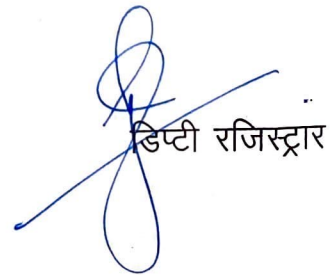 डिप्टी रजिस्ट्रार